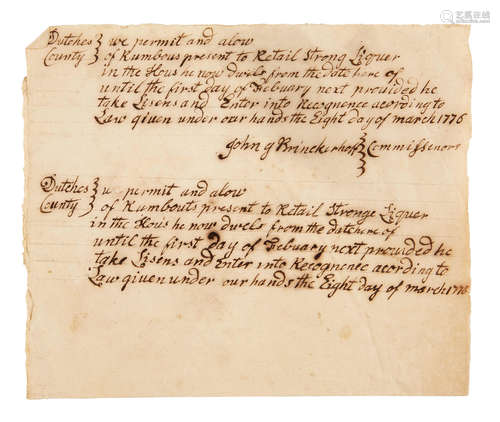 艺采网
Dutches } we permit and alow
County } of Rumbous present to Retail Strong Liquer
in the Hous he now Dwels from the date here of
until the first day of Febuary next provided he
take Lisens and Enter into Recognence acording to
Law given under our hands the Eight day of march 1776
John G Brinckerhoff } Commissenors
Dutches } we permit and alow
County } of Rumbouts present to Retail Stronge Liquer
in the Hous he now dwels from the date here of
until the first day of Febuary next provided he
take Lisens and Enter into Recognence acording to
Law given under our hands the Eight day of march 1776